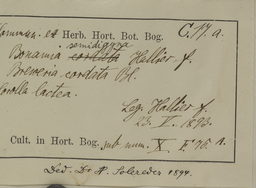 Commun. ex Herb. Hort. Bot. Bog. C.17.a.
semidigyna
Bonamia cordata Hallier f.
Breweria cordata Bl.
Corolla lactea.
Leg. Hallier f.
23. V. 1893.
Cult. in Hort. Bog. sub num. X. F. 95 a.
Ded. Dr H. Solereder 1894.